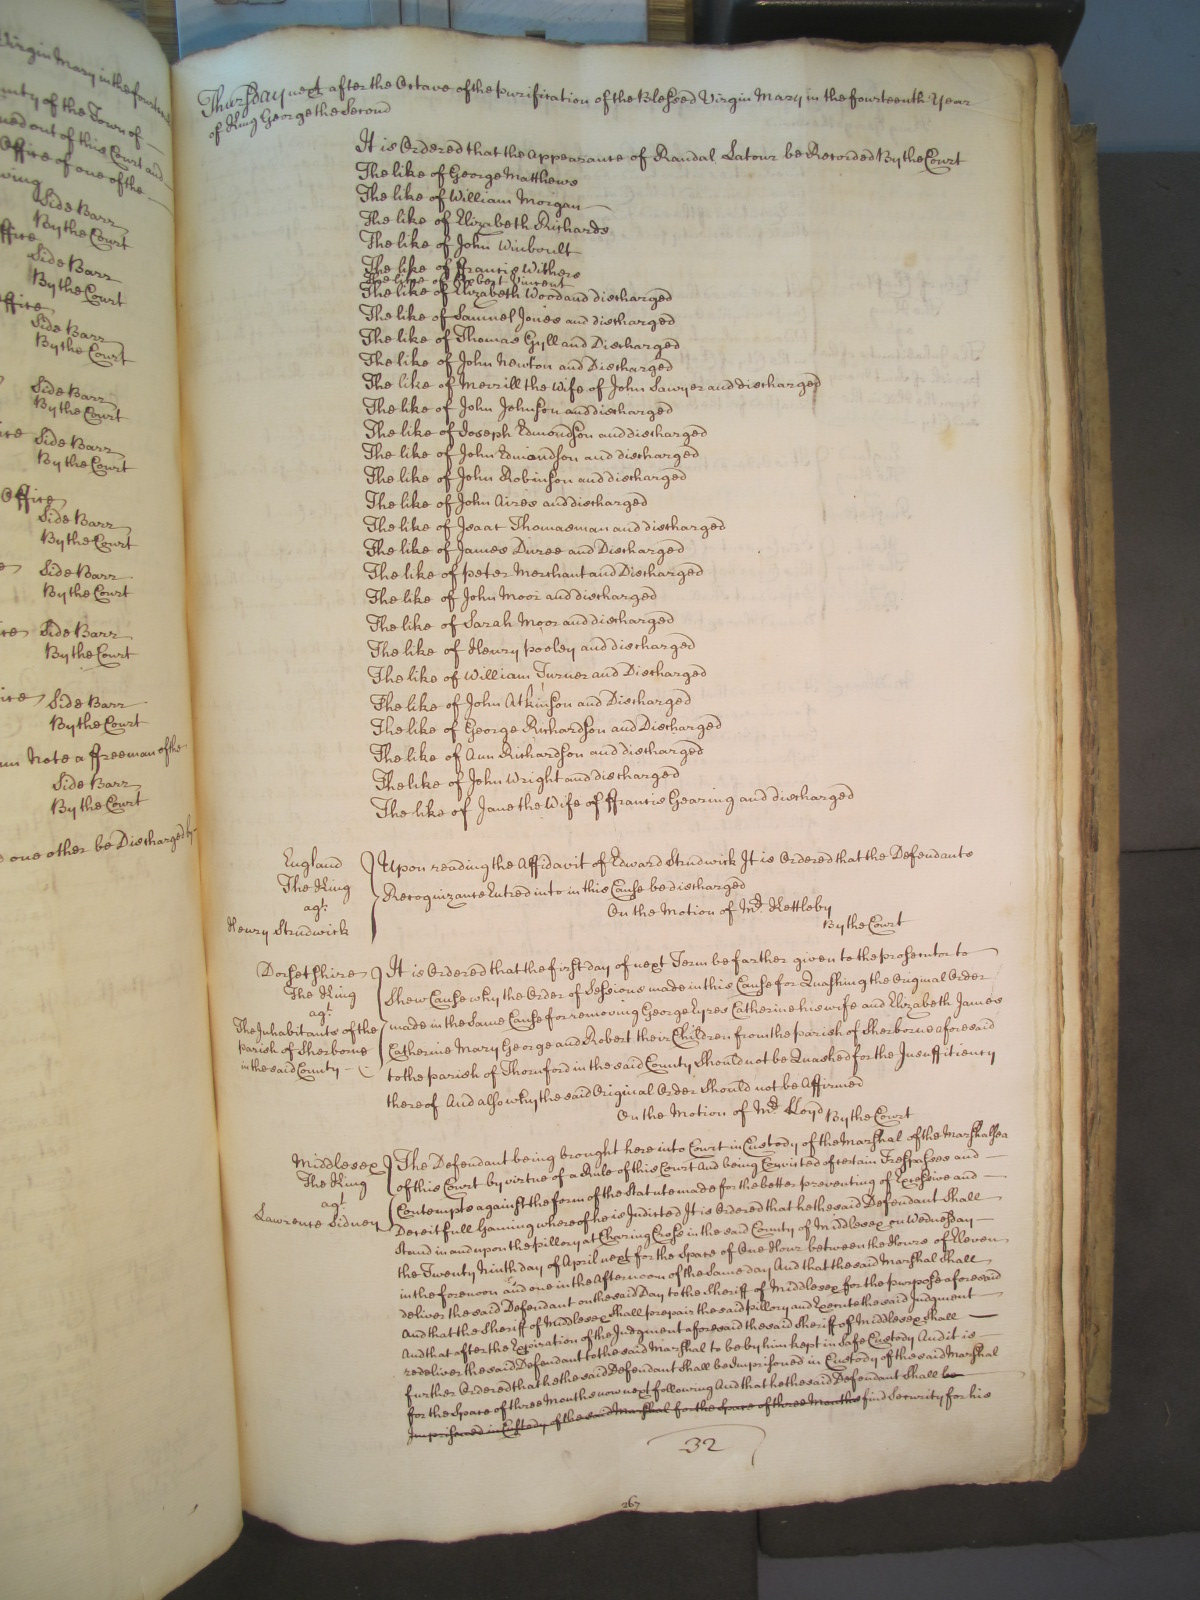 Virgin Mary in the fourteenth
County of the Town of
issued out of this Court and
Office of one of the
Side Barr
By the Court
Office
Side Barr
By the Court
Office
Side Barr
By the Court
Side Barr
By the Court
Side Barr
By the Court
Office
Side Barr
By the Court
Side Barr
By the Court
Side Barr
By the Court
Side Barr
By the Court
Note a freeman of the
Side Barr
By the Court
one other be Discharged by
Thursday next after the Octave of the purification of the Blessed Virgin Mary in the fourteenth Year
of King George the Second
It is Ordered that the Appearance of Randal Latour be Recorded By the Court
The like of George Matthews
The like of William Morgan
The like of Elizabeth Richards
The like of John Winboult
The like of ffrancis Withers
The like of Robert Vincent
The like of Elizabeth Wood and discharged
The like of Samuel Jones and discharged
The like of Thomas Gyll and Discharged
The like of John Newton and Discharged
The like of Merrill the Wife of John Sawyer and discharged
The like of John Johnson and discharged
The like of Joseph Edmondson and discharged
The like of John Edmandson and discharged
The like of John Robinson and discharged
The like of John Aires and discharged
The like of Isaac Thomasman and discharged
The like of James Duree and Discharged
The like of peter Merchant and Discharged
The like of John Moor and discharged
The like of Sarah Moor and discharged
The like of Henry pooley and discharged
The like of William Turner and Discharged
The like of John Atkinson and Discharged
The like of George Richardson and Discharged
The like of Ann Richardson and discharged
The like of John Wright and discharged
The like of Jane the Wife of ffrancis Gearing and discharged
England
The King
agt.
Henry Strudwick
Upon reading the Affidavit of Edward Strudwick It is Ordered that the Defendants
Recognizance Entred into in this Cause be discharged
On the Motion of Mr. Kettleby
By the Court
Dorsetshire
The King
agt.
The Inhabitants of the
parish of Sherborne
in the said County
It is Ordered that the first day of next Term be farther given to the prosecutor to
Shew Cause why the Order of Sessions made in this Cause for Quashing the Original Order
made in the Same Cause for removing George Eyres Catherine his wife and Elizabeth James
Catherine Mary George and Robert their Children from the parish of Sherborne aforesaid
to the parish of Thornford in the said County Should not be Quashed for the Insufficiency
thereof And also why the said Original Order Should not be Affirmed
On the Motion of Mr. Lloyd By the Court
Middlesex
The King
agt.
Lawrence Sidney
The Defendant being brought here into Court in Custody of the Marshal of the Marshalsea
of this Court by virtue of a Rule of this Court And being Convicted of certain Trespasses and
Contempts against the form of the Statute made for the better preventing of Excessive and
Deceitfull Gaming whereof he is Indicted It is Ordered that he the said Defendant Shall
Stand in and upon the pillory at Charing Cross in the said County of Middlesex on Wednesday
the Twenty Ninth day of April next for the Space of One Hour between the Hours of Eleven
in the forenoon and one in the Afternoon of the Same day And that the said Marshal Shall
deliver the said Defendant on the said Day to the Sheriff of Middlesex for the purpose aforesaid
And that the Sheriff of Middlesex Shall prepair the said pillory and Execute the said Judgment
And that after the Expiration of the Judgment aforesaid the said Sheriff of Middlesex Shall
redeliver the said Defendant to the said Marshal to be by him kept in Safe Custody And it is
further Ordered that he the said Defendant Shall be Imprisoned in Custody of the said Marshal
for the Space of three Months now next following And that he the said Defendant Shall be
Imprisoned in Custody of the said Marshal for the Space of three Months find Security for his
32
267